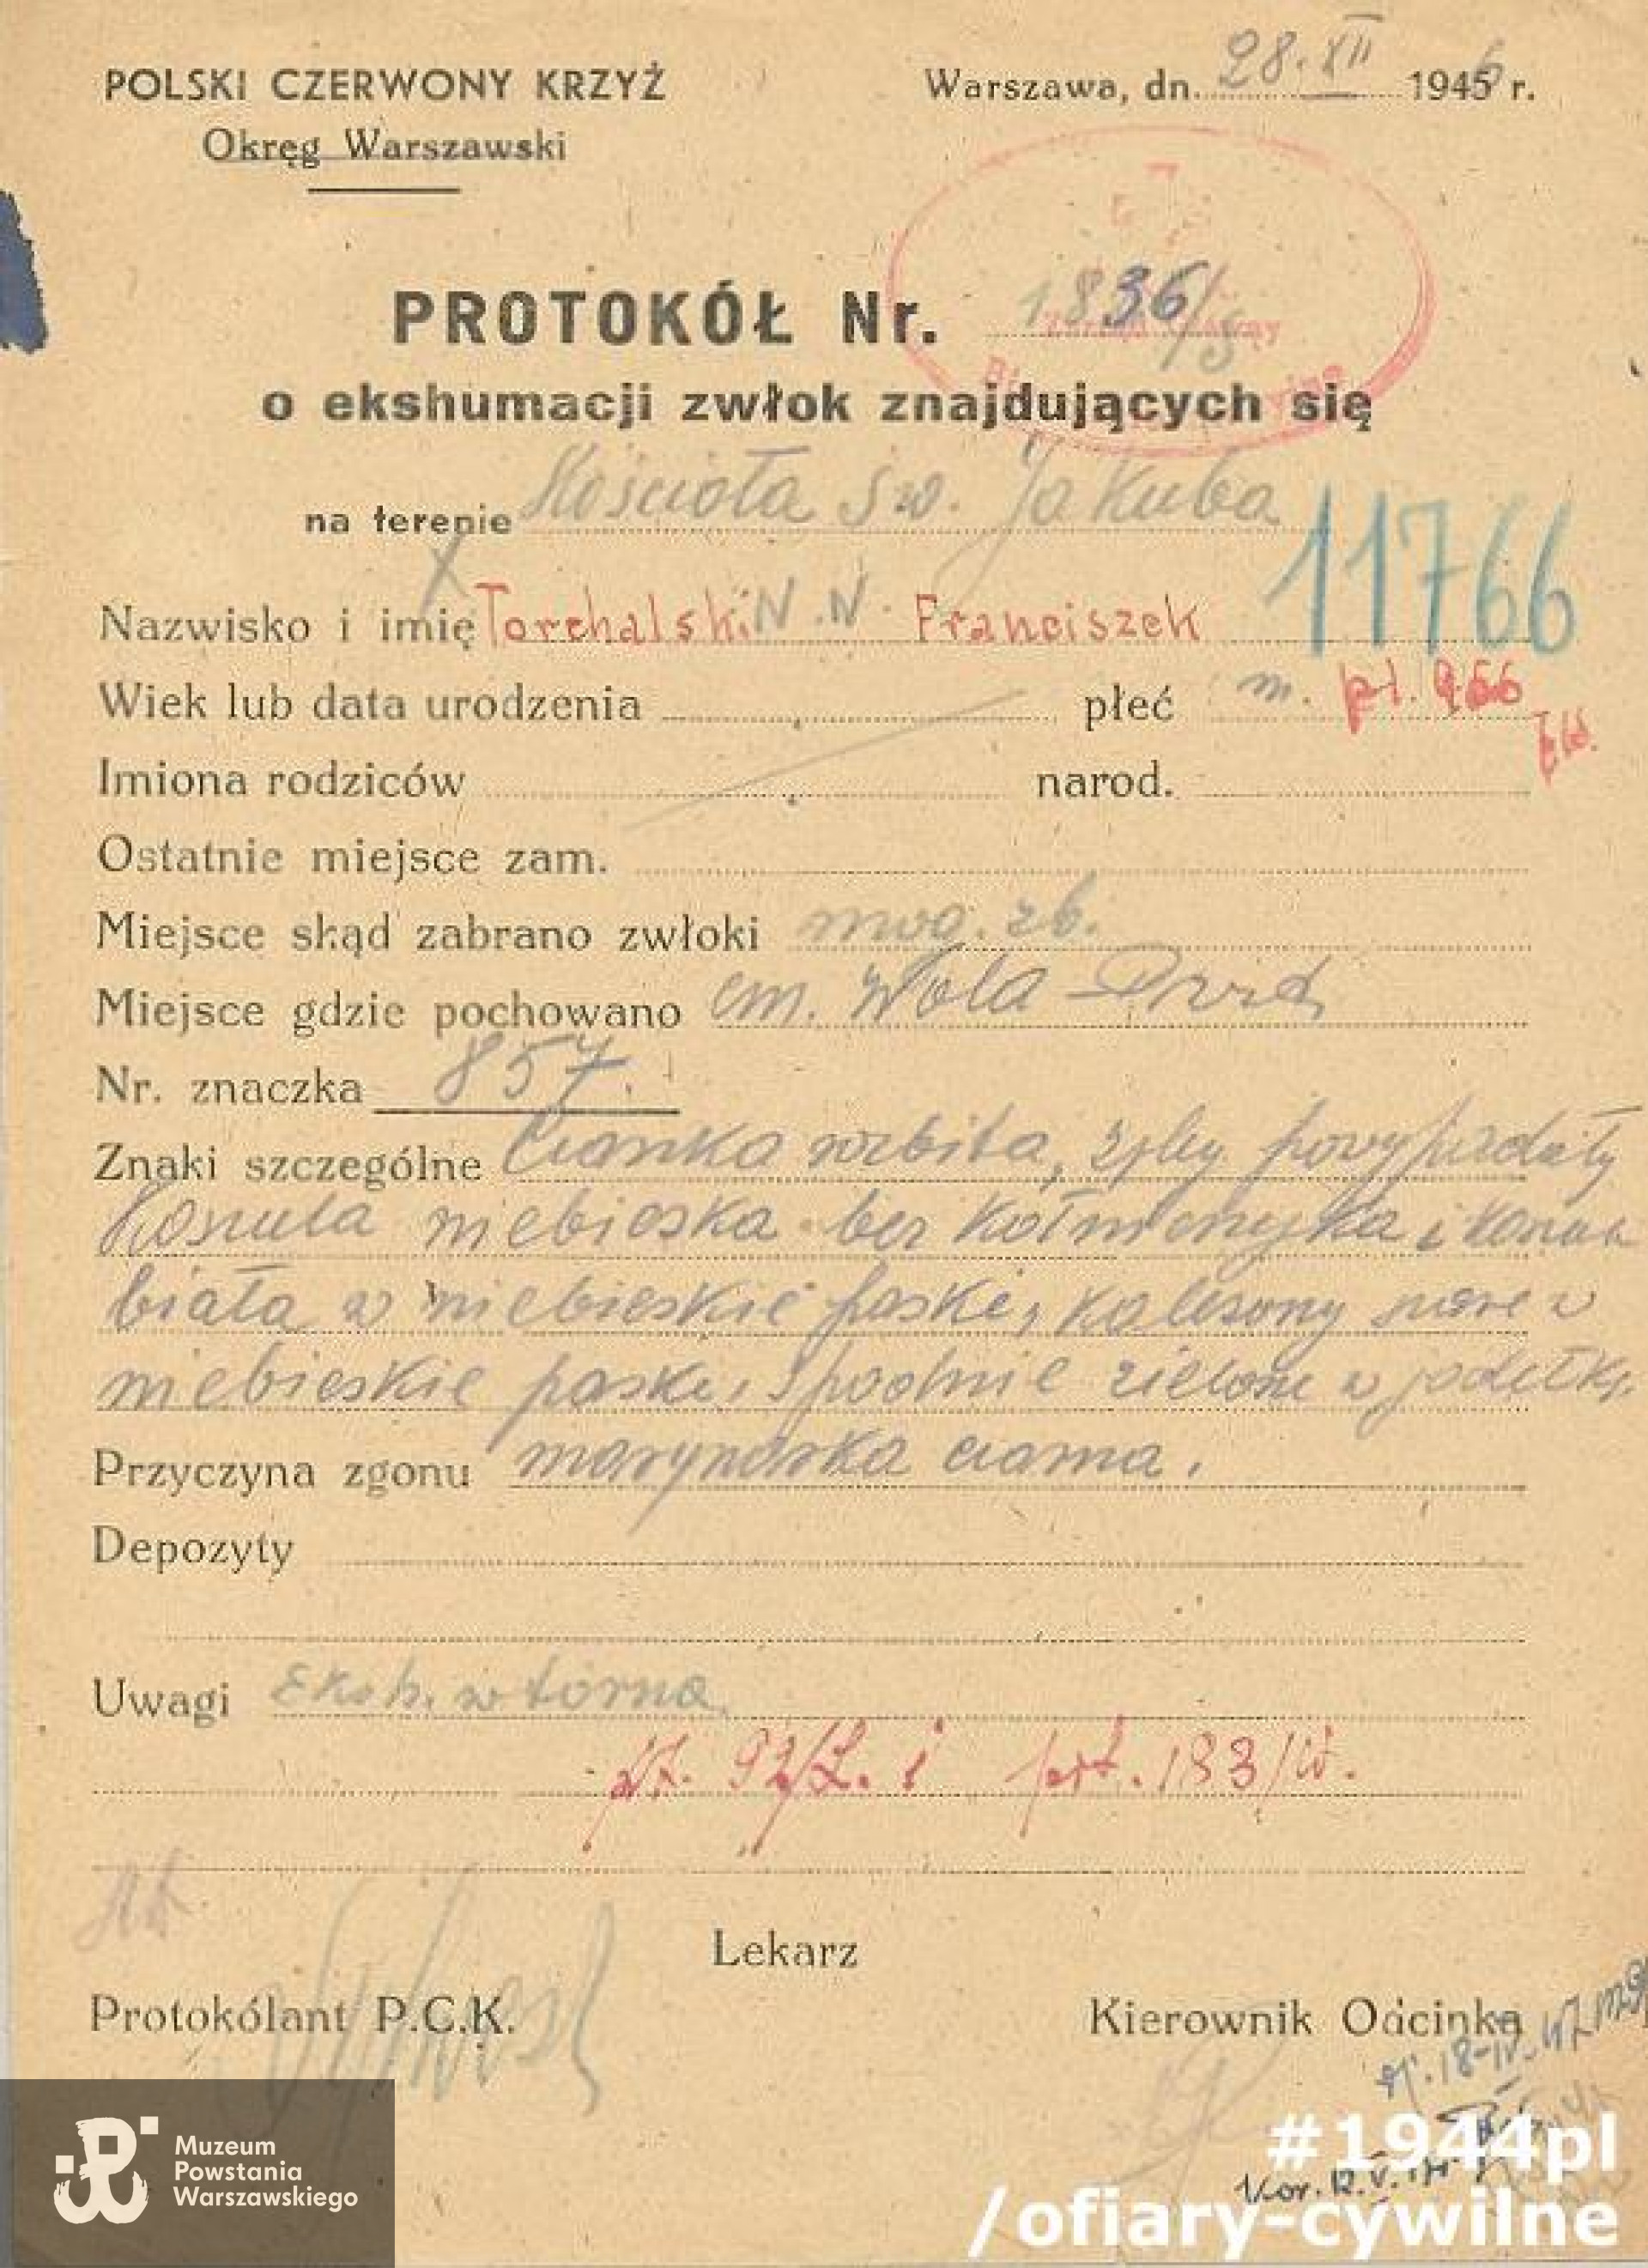 POLSKI CZERWONY KRZYŻ
Okręg Warszawski
Warszawa, dn. 28.XII 1946 r.
PROTOKÓŁ Nr. 1836/S
o ekshumacji zwłok znajdujących się
na terenie Kościoła św. Jakuba
11766
Nazwisko i imię Torchalski N.N. Franciszek
Wiek lub data urodzenia płeć m. pł.
Imiona rodziców narod.
Ostatnie miejsce zam.
Miejsce skąd zabrano zwłoki mog. zb.
Miejsce gdzie pochowano cm. Wola
Nr. znaczka 857.
Znaki szczególne Czaszka rozbita, zęby
Koszula niebieska bez kołnierzyka i
biała w niebieskie paski, kalesony szare w
niebieskie paski, spodnie zielone w jodełkę,
Przyczyna zgonu marynarka czarna.
Depozyty
Uwagi Eksh. wtórna
92/L. i prt. 183/W.
Lekarz
Protokólant P.C.K.
Kierownik Odcinka
Muzeum
Powstania
Warszawskiego
#1944pl
/ofiary-cywilne